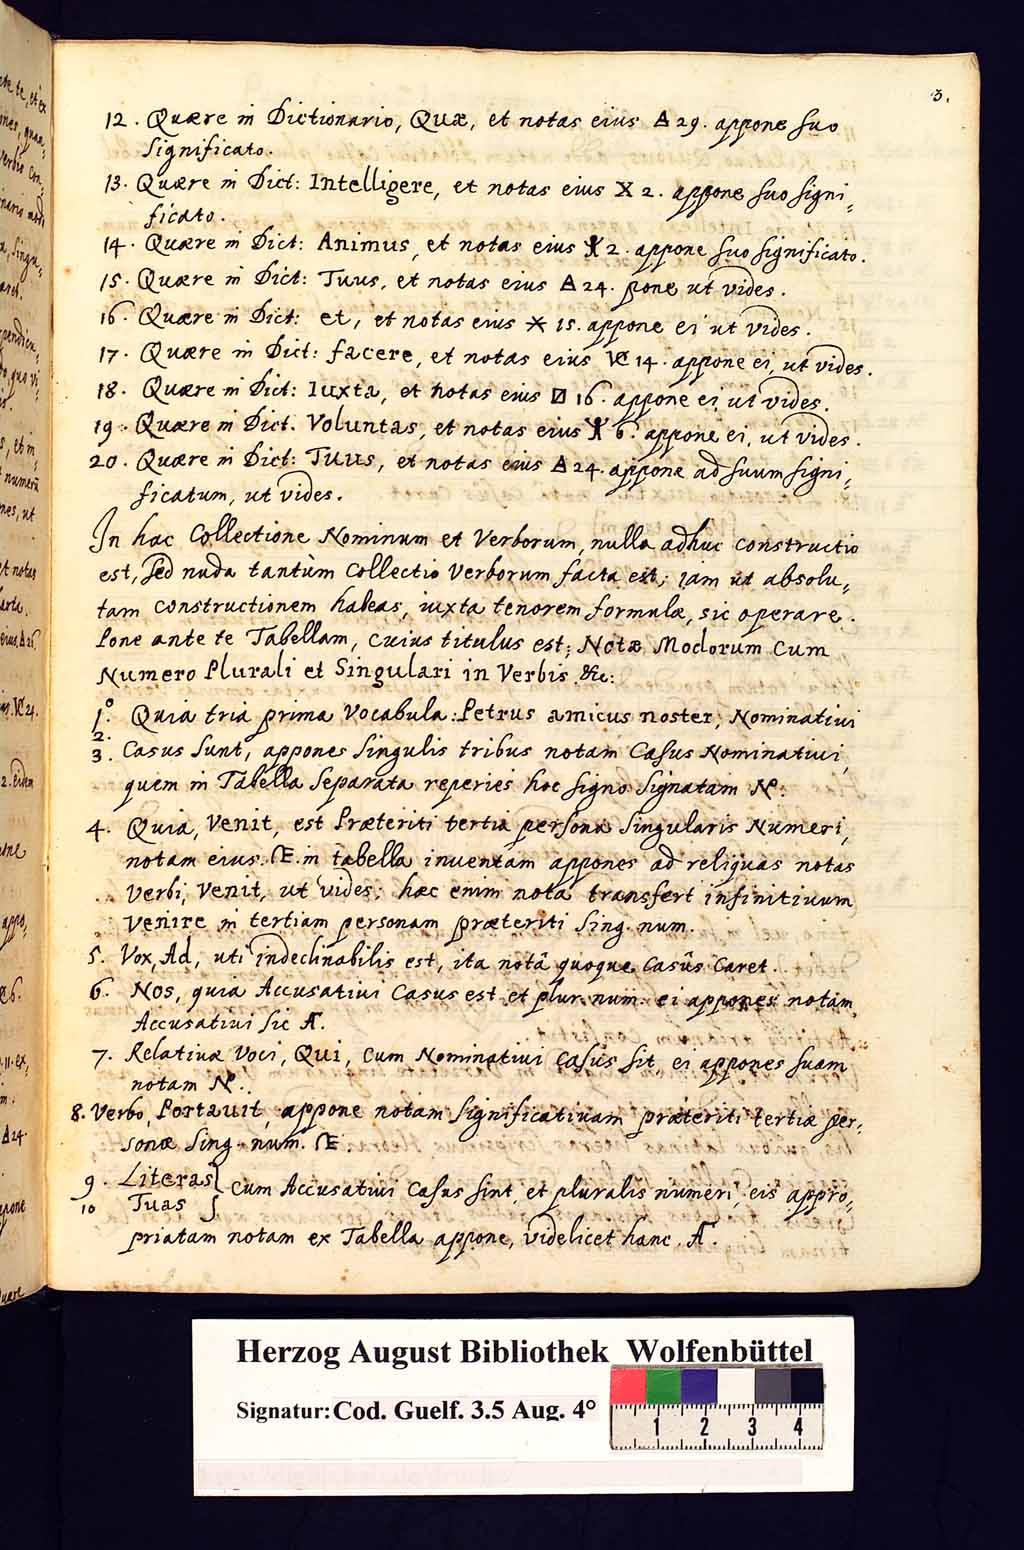 3.
12. Quære in Dictionario, Quæ, et notas eius Δ 29. appone suo
significato.
13. Quære in Dict: Intelligere, et notas eius X 2. appone suo signi,
ficato.
14. Quære in Dict: Animus, et notas eius 2. appone suo significato.
15. Quære in Dict: Tuus, et notas eius Δ 24. pone ut vides.
16. Quære in Dict: et, et notas eius 15. appone ei ut vides.
17. Quære in Dict: facere, et notas eius 14. appone ei, ut vides.
18. Quære in Dict: Iuxta, et notas eius 16. appone ei ut vides.
19. Quære in Dict. Voluntas, et notas eius 6. appone ei, ut vides.
20. Quære in Dict: Tuus, et notas eius Δ 24. appone ad suum signi,
ficatum, ut vides.
In hac Collectione Nominum et Verborum, nulla adhuc constructio
est, sed nuda tantùm Collectio Verborum facta est; iam ut absolu,
tam constructionem habeas, iuxta tenorem formulæ, sic operare.
Pone ante te Tabellam, cuius titulus est; Notæ Modorum cum
Numero Plurali et Singulari in Verbis &c:
1º. Quia tria prima Vocabula: Petrus amicus noster, Nominatiui
2.
3. Casus sunt, appones singulis tribus notam Casus Nominatiui,
quem in Tabella separata reperies hoc signo signatam N.
4. Quia, Venit, est Præteriti tertia persona Singularis Numeri,
notam eius. Æ. in tabella inuentam appones ad reliquas notas
Verbi, Venit, ut vides; hæc enim nota transfert infinitiuum
Venire in tertiam personam præteriti Sing. num.
5. Vox, Ad, uti indeclinabilis est, ita notâ quoque Casûs Caret.
6. Nos, quia Accusatiui Casus est et plur. num. ei appones notam
Accusatiui sic A.
7. Relatiuæ Voci, Qui, cum Nominatiui casus sit, ei appones suam
notam N.
8. Verbo, Portauit, appone notam significatiuam præteriti tertiæ per,
sonæ Sing. num. Æ.
9. Literas
10 Tuas
cum Accusatiui Casus sint, et pluralis numeri, eis appro,
priatam notam ex Tabella appone, videlicet hanc. A.
Herzog August Bibliothek Wolfenbüttel
Signatur: Cod. Guelf. 3.5 Aug. 4°
1 2 3 4